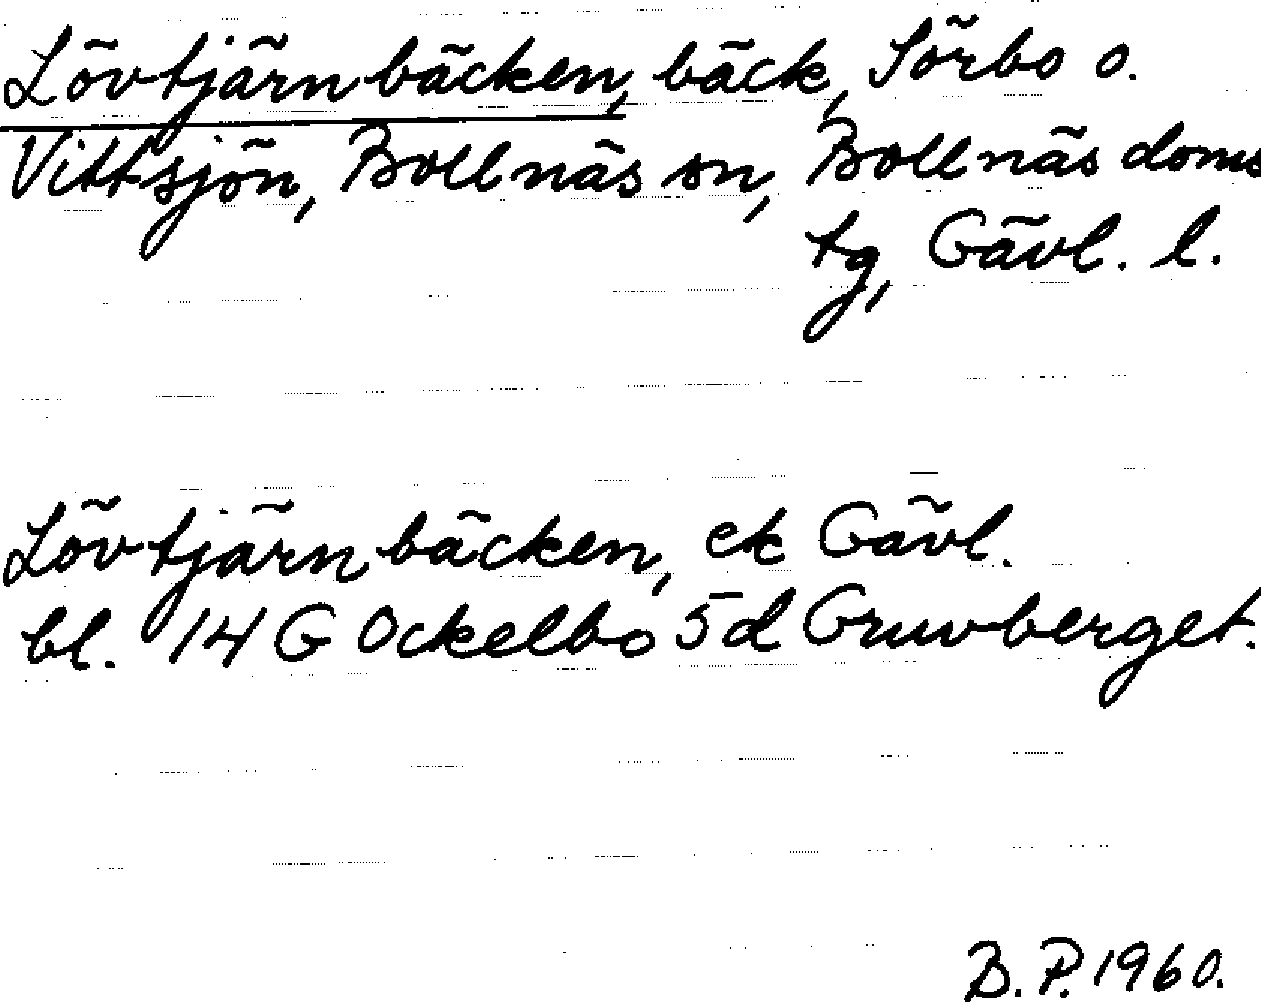 Lövtjärnbäcken, bäck, Sörbo o.
Vittsjön, Bollnäs sn, Bollnäs doms
tg, Gävl. l.
Lövtjärnbäcken, ek Gävl.
bl. 14 G Ockelbo 5d Gruvberget.
B. P. 1960.